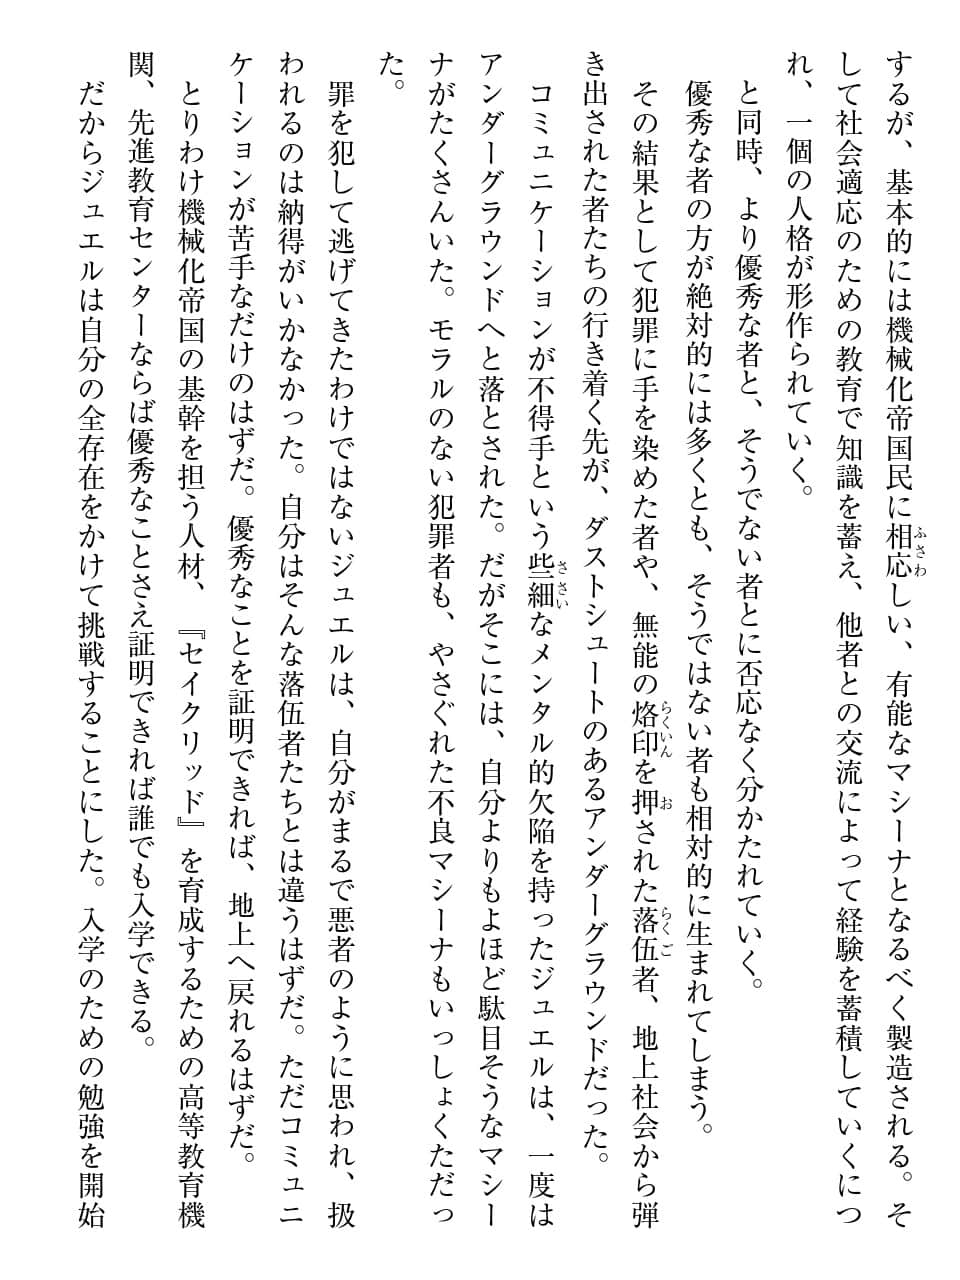 するが、基本的には機械化帝国民に相応しい、有能なマシーナとなるべく製造される。そ
して社会適応のための教育で知識を蓄え、他者との交流によって経験を蓄積していくにつ
れ、一個の人格が形作られていく。
と同時、より優秀な者と、そうでない者とに否応なく分かたれていく。
優秀な者の方が絶対的には多くとも、そうではない者も相対的に生まれてしまう。
その結果として犯罪に手を染めた者や、無能の烙印を押された落伍者、地上社会から弾
き出された者たちの行き着く先が、ダストシュートのあるアンダーグラウンドだった。
コミュニケーションが不得手という些細なメンタル的欠陥を持ったジュエルは、一度は
アンダーグラウンドへと落とされた。だがそこには、自分よりもよほど駄目そうなマシー
ナがたくさんいた。モラルのない犯罪者も、やさぐれた不良マシーナもいっしょくただっ
た。
罪を犯して逃げてきたわけではないジュエルは、自分がまるで悪者のように思われ、扱
われるのは納得がいかなかった。自分はそんな落伍者たちとは違うはずだ。ただコミュニ
ケーションが苦手なだけのはずだ。優秀なことを証明できれば、地上へ戻れるはずだ。
とりわけ機械化帝国の基幹を担う人材、『セイクリッド』を育成するための高等教育機
関、先進教育センターならば優秀なことさえ証明できれば誰でも入学できる。
だからジュエルは自分の全存在をかけて挑戦することにした。入学のための勉強を開始